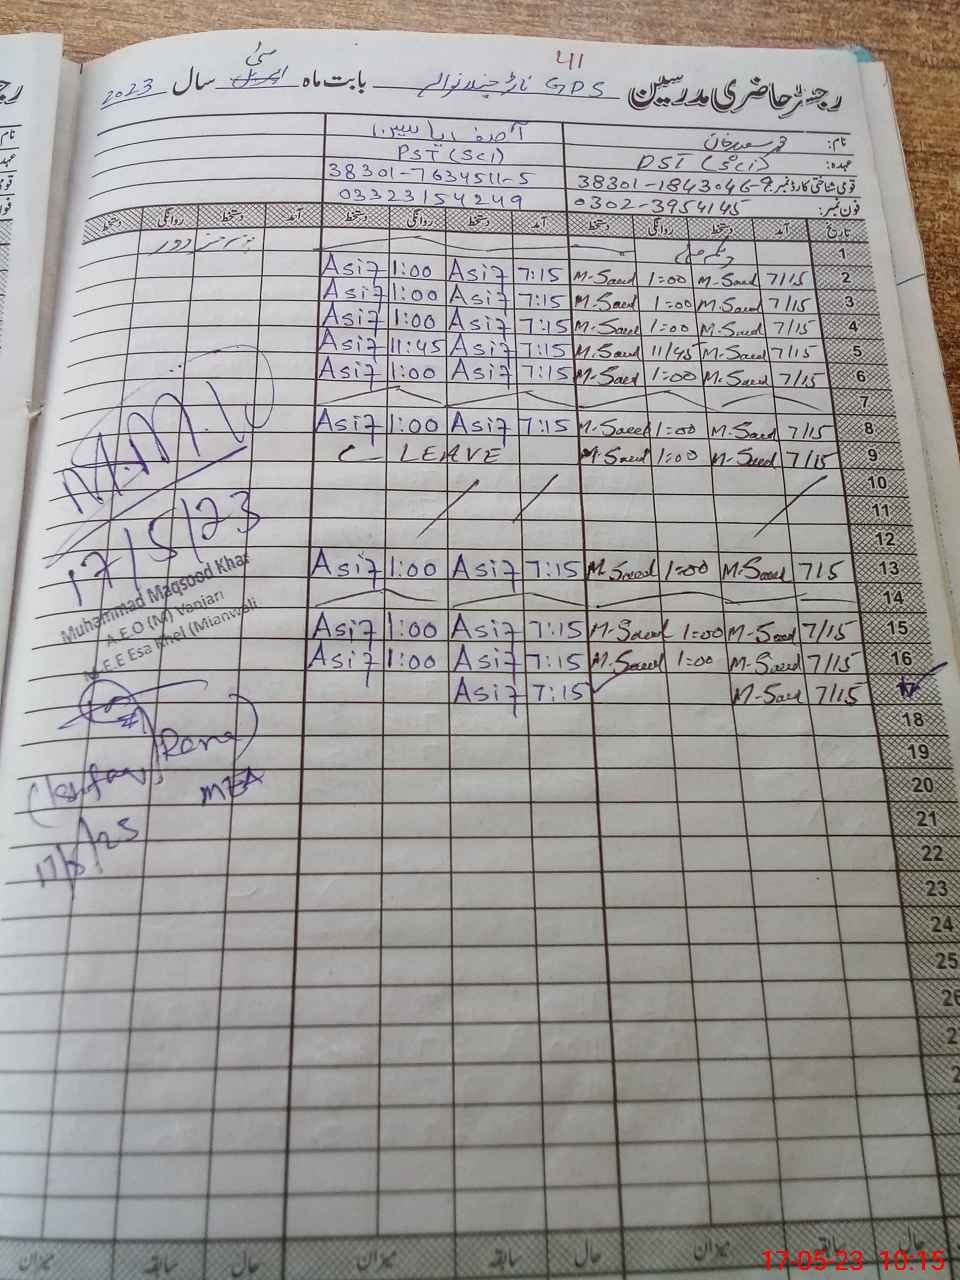 41
رجسٹر حاضری مدرسین GPS ناڑ جندر نوالہ بابت ماہ مئی سال 2023
نام: محمد سعید خان آصف یاسین
عہدہ: PST (Sci) PST (Sci)
قومی شناختی کارڈ نمبر: 38301-1843046-9 38301-7634511-5
فون نمبر: 0302-3954145 03323154249
تاریخ آمد دستخط روانگی دستخط آمد دستخط روانگی دستخط آمد دستخط روانگی دستخط
1 یوم مزدور
2 7/15 M-Saeed 1=00 M-Saeed 7:15 Asif 1:00 Asif
3 7/15 M-Saeed 1=00 M-Saeed 7:15 Asif 1:00 Asif
4 7/15 M-Saeed 1=00 M-Saeed 7:15 Asif 1:00 Asif
5 7/15 M-Saeed 11/45 M-Saeed 7:15 Asif 11:45 Asif
6 7/15 M-Saeed 1=00 M-Saeed 7:15 Asif 1:00 Asif
7
8 7/15 M-Saeed 1=00 M-Saeed 7:15 Asif 1:00 Asif
9 7/15 M-Saeed 1=00 M-Saeed C- LEAVE
10
11
12
13 715 M-Saeed 1=00 M-Saeed 7:15 Asif 1:00 Asif
14
15 7/15 M-Saeed 1=00 M-Saeed 7:15 Asif 1:00 Asif
16 7/15 M-Saeed 1=00 M-Saeed 7:15 Asif 1:00 Asif
17 7/15 M-Saeed 7:15 Asif
18
19
20
21
22
23
24
25
26
17/5/23
Muhammad Maqsood Khan
A.E.O (M) Vanjari
Esa Khel (Mianwali)
Rana)
MEA
حال سابقہ میزان حال سابقہ میزان حال سابقہ میزان
17-05-23 10:15